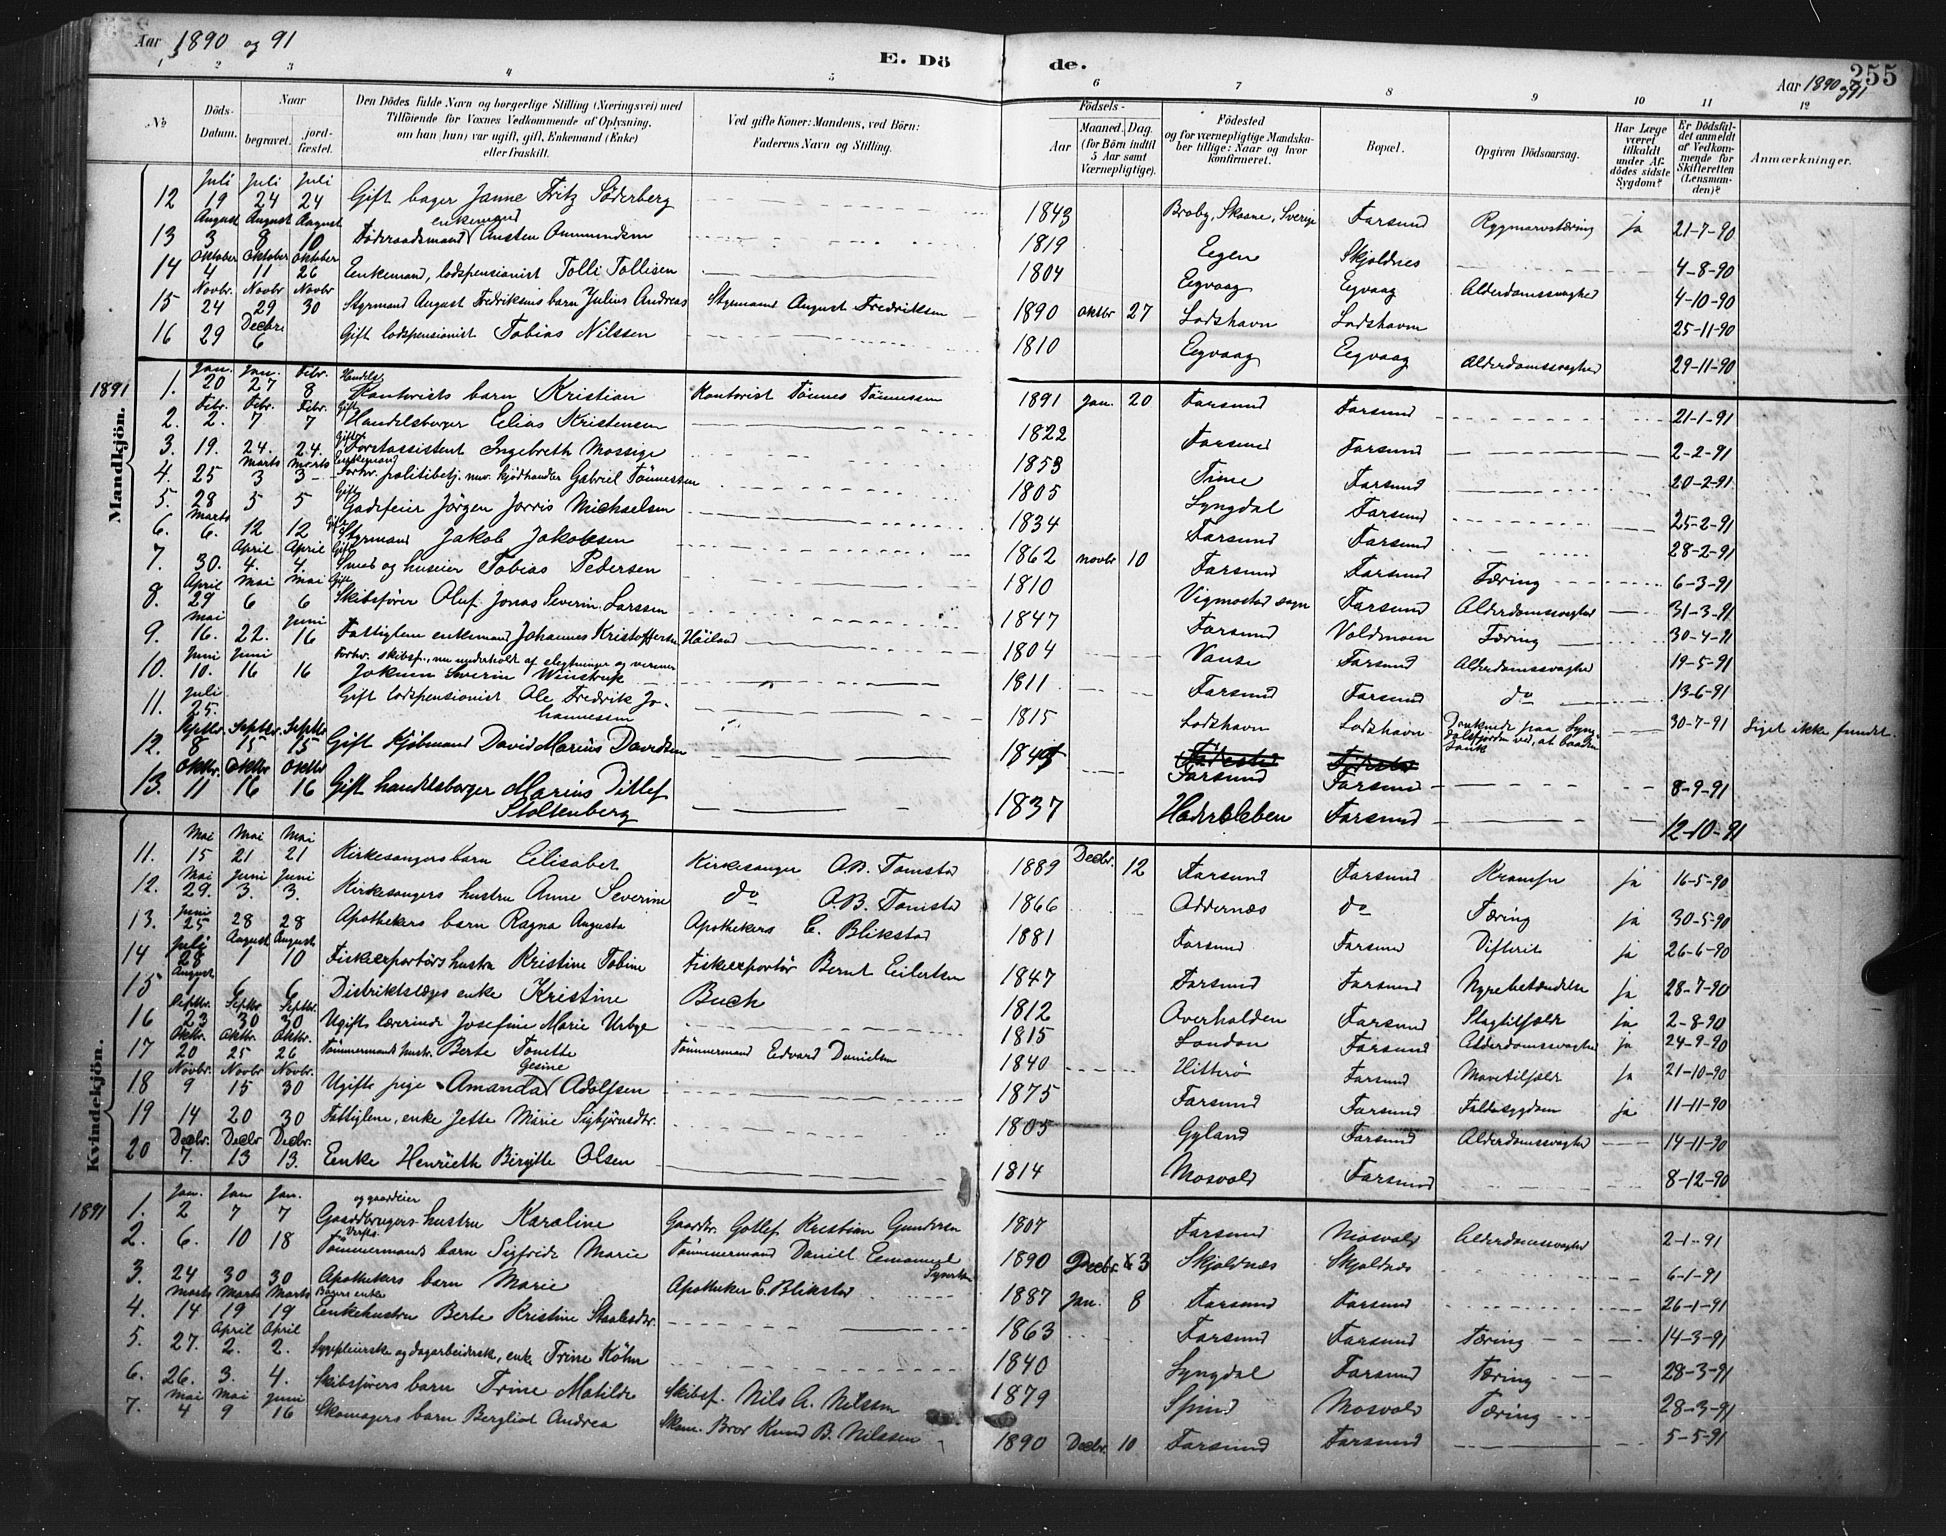 Aar 1890 og 91
E. Döde.
Aar 1890 og 91
255
1 2 3 4 5 6 7 8 9 10 11 12
No
Döds-Datum.
Naar
begravet.
jord-fæstet.
Den Dödes fulde Navn og borgerlige Stilling (Næringsvei) med
Tilföiende for Voxnes Vedkommende af Oplysning,
om han (hun) var ugift, gift, Enkemand (Enke)
eller fraskilt.
Ved gifte Koner: Mandens, ved Börn:
Faderens Navn og Stilling.
Födsels-
Aar
Maaned. Dag.
(for Börn indtil
5 Aar samt
Værnepligtige).
Födested
og for værnepligtige Mandska-
ber tillige: Naar og hvor
konfirmeret.
Bopæl.
Opgiven Dödsaarsag.
Har Læge
været
tilkaldt
under Af-
dödes sidste
Sygdom?
Er Dödsfal-
det anmeldt
af Vedkom-
mende for
Skifteretten
(Lensman-
den)?
Anmærkninger.
Mandkjön.
12 Juli 19 Juli 24 Juli 24 Gift bager Janne Fritz Söderberg 1843 Broby, Skaane, Sverige Farsund Rygmarvstæring ja 21-7-90
13 August 3 August 8 August 10 Föderaadsmand enkemand Austen Ommundsen 1819 Eegene Skjoldnes 4-8-90
14 Oktober 4 Oktober 11 Oktober 26 Enkemand, lodspensionist Tolli Tollisen 1804 Eegvaag Eegvaag Alderdomssvaghed 4-10-90
15 Novbr. 24 Novbr 29 Novbr 30 Styrmand August Fredriksens barn Julius Andreas Styrmand August Fredriksen 1890 oktbr 27 Lodshavn Lodshavn 25-11-90
16 29 Decbr 6 Gift lodspensionist Tobias Nilssen 1810 Eegvaag Eegvaag Alderdomssvaghed 29-11-90
1891
1. Jan. 20 Jan. 27 Febr. 8 Handels Kontorists barn Kristian Kontorist Tönnes Tönnessen 1891 Jan. 20 Farsund Farsund 21-1-91
2. Febr. 2. Febr. 7 Febr. 7 Gift Handelsborger Elias Kristensen 1822 Farsund Farsund 2-2-91
3. 19. 24. 24. Gift Forstassistent Ingebreth Mossige 1853 Time Farsund 20-2-91
4. 25 Marts 3 Marts 3 Enkemand Forhv. politibetj. nuv. kjödhandler Gabriel Tönnessen 1805 Lyngdal Farsund 25-2-91
5. 28 5 5 Gift Gadefeier Jörgen Jorris Michaelsen 1834 Farsund Farsund 28-2-91
6. Marts 6. 12 12 Gift Styrmand Jakob Jakobsen 1862 novbr 10 Farsund Farsund Tæring 6-3-91
7. 30. April 4. April 4. Gift Smed og huseier Tobias Pedersen 1810 Vigmostad sogn Farsund Alderdomssvaghed 31-3-91
8. April 29 Mai 6 Mai 6 Gift Skibsförer Oluf Jonas Severin Larssen 1847 Farsund Voldmoen Tæring 30-4-91
9. Mai 16. 22. Juni 16 Fattiglem enkemand Johannes Kristoffersen Höiland 1804 Vanse Farsund Alderdomssvaghed 19-5-91
10. Juni 10. Juni 16 16 Forhv. skibsf., nu underholdt af slegtninger og venner Jokum Severin Winstrup 1811 Farsund Farsund do 13-6-91
11. Juli 25. Gift lodspensionist Ole Fredrik Johannessen 1815 Lodshavn Lodshavn Druknede paa Lyngdalsfjorden ved, at baaden sank 30-7-91 Liget ikke fundet.
12. Septbr. 8 Septbr. 15 Septbr 15 Gift kjöbmand David Marius Davidsen Farsund Farsund 8-9-91
13. Oktbr. 11 Oktbr 16 Oktbr 16 Gift handelsborger Marius Ditlef Stoltenberg 1837 Hadersleben Farsund 12-10-91
Kvindekjön.
11. Mai 15 Mai 21 Mai 21 Kirkesangers barn Eilisabet Kirkesanger O.B. Tomstad 1889 Decbr. 12 Farsund Farsund Krampe ja 16-5-90
12. Mai 29. Juni 3. Juni 3. Kirkesangers hustru Anne Severine do O.B. Tomstad 1866 Oddernæs do Tæring ja 30-5-90
13. Juni 25 28 28 Apothekers barn Ragna Augusta Apothekers C. Blikstad 1881 Farsund Farsund Difterit ja 26-6-90
14 Juli 28 August 1 August 10 Fiskeexportörs hustru Kristine Tobine Fiskeexportör Bernt Eilertsen 1847 Farsund Farsund Nyrebetændelse ja 28-7-90
15 August 1 6 6 Distriktslæges enke Kristine Buch 1812 Overhalden Farsund Slagtilfælde ja 2-8-90
16 Septbr. 23 Septbr 30 Septbr. 30 Ugifts lærerinde Josefine Marie Urbye 1815 London Farsund Alderdomssvaghed ja 24-9-90
17 Oktbr. 20 Oktbr. 25 Oktbr. 26 Tömmermands hustr. Berte Tonette Tömmermand Edvard Danielsen 1840 Hitterö Farsund Mavetilfælde ja 21-10-90
18 Novbr 9 Novbr 15 Novbr. 30 Ugifte pige Amanda Gesine Adolfsen 1875 Farsund Farsund Faldesygdom ja 11-11-90
19 14 20 30 Fattiglem, enke Jette Marie Sigbjörnsdtr. 1805 Gyland Farsund Alderdomssvaghed 14-11-90
20 Decbr. 7. Decbr 13 Decbr. 13. Enke Henrieth Bergitte Olsen 1814 Mosvold Farsund 8-12-90
1891
1. Jan. 2 Jan 7 Jan. 7 Gaardbrugers og gaardeier hustru Karoline Gaardbr. Gotlef Kristian Gundersen 1807 Farsund Mosvold Alderdomssvaghed 2-1-91
2. 6. 10 18 Verfts. Tömmermands barn Sigfride Marie Tömmermand Daniel Emanuel Syvertsen 1890 Decbr. 3 Skjoldnæs Skjoldnæs 6-1-91
3. 24 30 30 Apothekers barn Marie Apotheker C. Blikstad 1887 Jan. 8 Farsund Farsund 26-1-91
4. Marts 14 Marts 19 Marts 19 Bagers enke Enkehustru Berte Kristine Staalesdtr. 1863 Farsund Farsund Tæring 14-3-91
5. 27. April 2. April 2. Sygepleierske og dagarbeidersk, enke Trine Köhn 1840 Lyngdal Farsund Tæring 28-3-91
6. 26. 3. 4. Skibsförers barn Trine Matilde Skibsf. Nils A. Nilssen 1879 Spind Mosvold Tæring 28-3-91
7. Mai 4 Mai 9 Juni 16 Skomagers barn Bergliot Andrea Skom. Bror Knud B. Nilssen 1890 Decbr. 10 Farsund Farsund 5-5-91